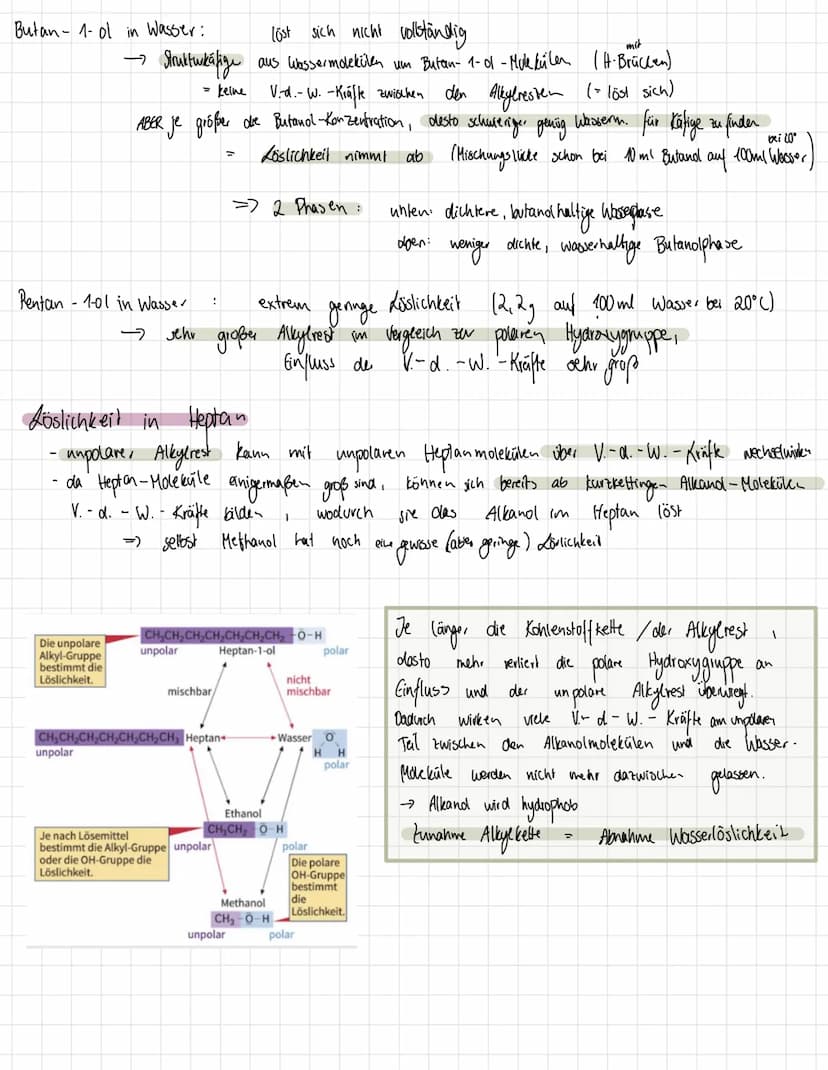 Butan-1-ol in Wasser: löst sich nicht vollständig
→ Strukturkäfige aus Wassermolekülen um Butan-1-ol-Moleküle (mit H-Brücken)
= keine V.-d.-W.-Kräfte zwischen den Alkylresten (= löst sich)
ABER je größer die Butanol-Konzentration, desto schwieriger genug Wasserm. für Käfige zu finden
= Löslichkeit nimmt ab (Mischungslücke schon bei 10ml Butanol auf 100ml Wasser bei 20°)
=> 2 Phasen: unten: dichtere, butanolhaltige Wasserphase
oben: weniger dichte, wasserhaltige Butanolphase
Pentan-1-ol in Wasser: extrem geringe Löslichkeit (2,2g auf 100ml Wasser bei 20°C)
→ sehr großer Alkylrest im Vergleich zur polaren Hydroxygruppe,
Einfluss der V.-d.-W.-Kräfte sehr groß
Löslichkeit in Heptan
- unpolarer Alkylrest kann mit unpolaren Heptanmolekülen über V.-d.-W.-Kräfte wechselwirken
- da Heptan-Moleküle einigermaßen groß sind, können sich bereits ab kurzkettingen Alkanol-Molekülen
V.-d.-W.-Kräfte bilden, wodurch sie das Alkanol im Heptan löst
=> selbst Methanol hat noch eine gewisse (aber geringe) Löslichkeit
Die unpolare
Alkyl-Gruppe
bestimmt die
Löslichkeit.
CH₃CH₂CH₂CH₂CH₂CH₂CH₂-O-H
unpolar Heptan-1-ol polar
mischbar
nicht
mischbar
CH₃CH₂CH₂CH₂CH₂CH₂CH₃ Heptan Wasser O
H H
unpolar
polar
Ethanol
CH₃CH₂ O-H
unpolar polar
Je nach Lösemittel
bestimmt die Alkyl-Gruppe
oder die OH-Gruppe die
Löslichkeit.
Die polare
OH-Gruppe
bestimmt
die
Löslichkeit.
Methanol
CH₃-O-H
unpolar polar
Je länger die Kohlenstoffkette / der Alkylrest,
desto mehr verliert die polare Hydroxygruppe an
Einfluss und der unpolare Alkylrest überwiegt.
Dadurch wirken viele V.-d-W.-Kräfte am unpolaren
Teil zwischen den Alkanolmolekülen und die Wasser-
Moleküle werden nicht mehr dazwischen gelassen.
→ Alkanol wird hydrophob
Zunahme Alkylkette = Abnahme Wasserlöslichkeit